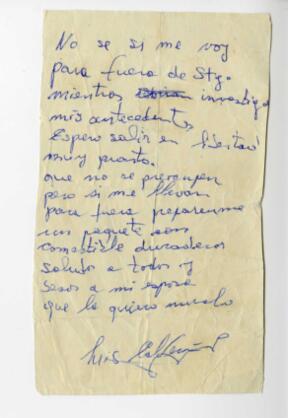 No se si me voy
para fuera de Stg.
mientras investiga
mis antecedentes
Espero salir en libertad
muy pronto.
que no se preocupen
pero si me llevan
para fuera preparenme
un paquete con
comestible duraderos
saludos a todos y
besos a mi esposa
que la quiero mucho
Luis